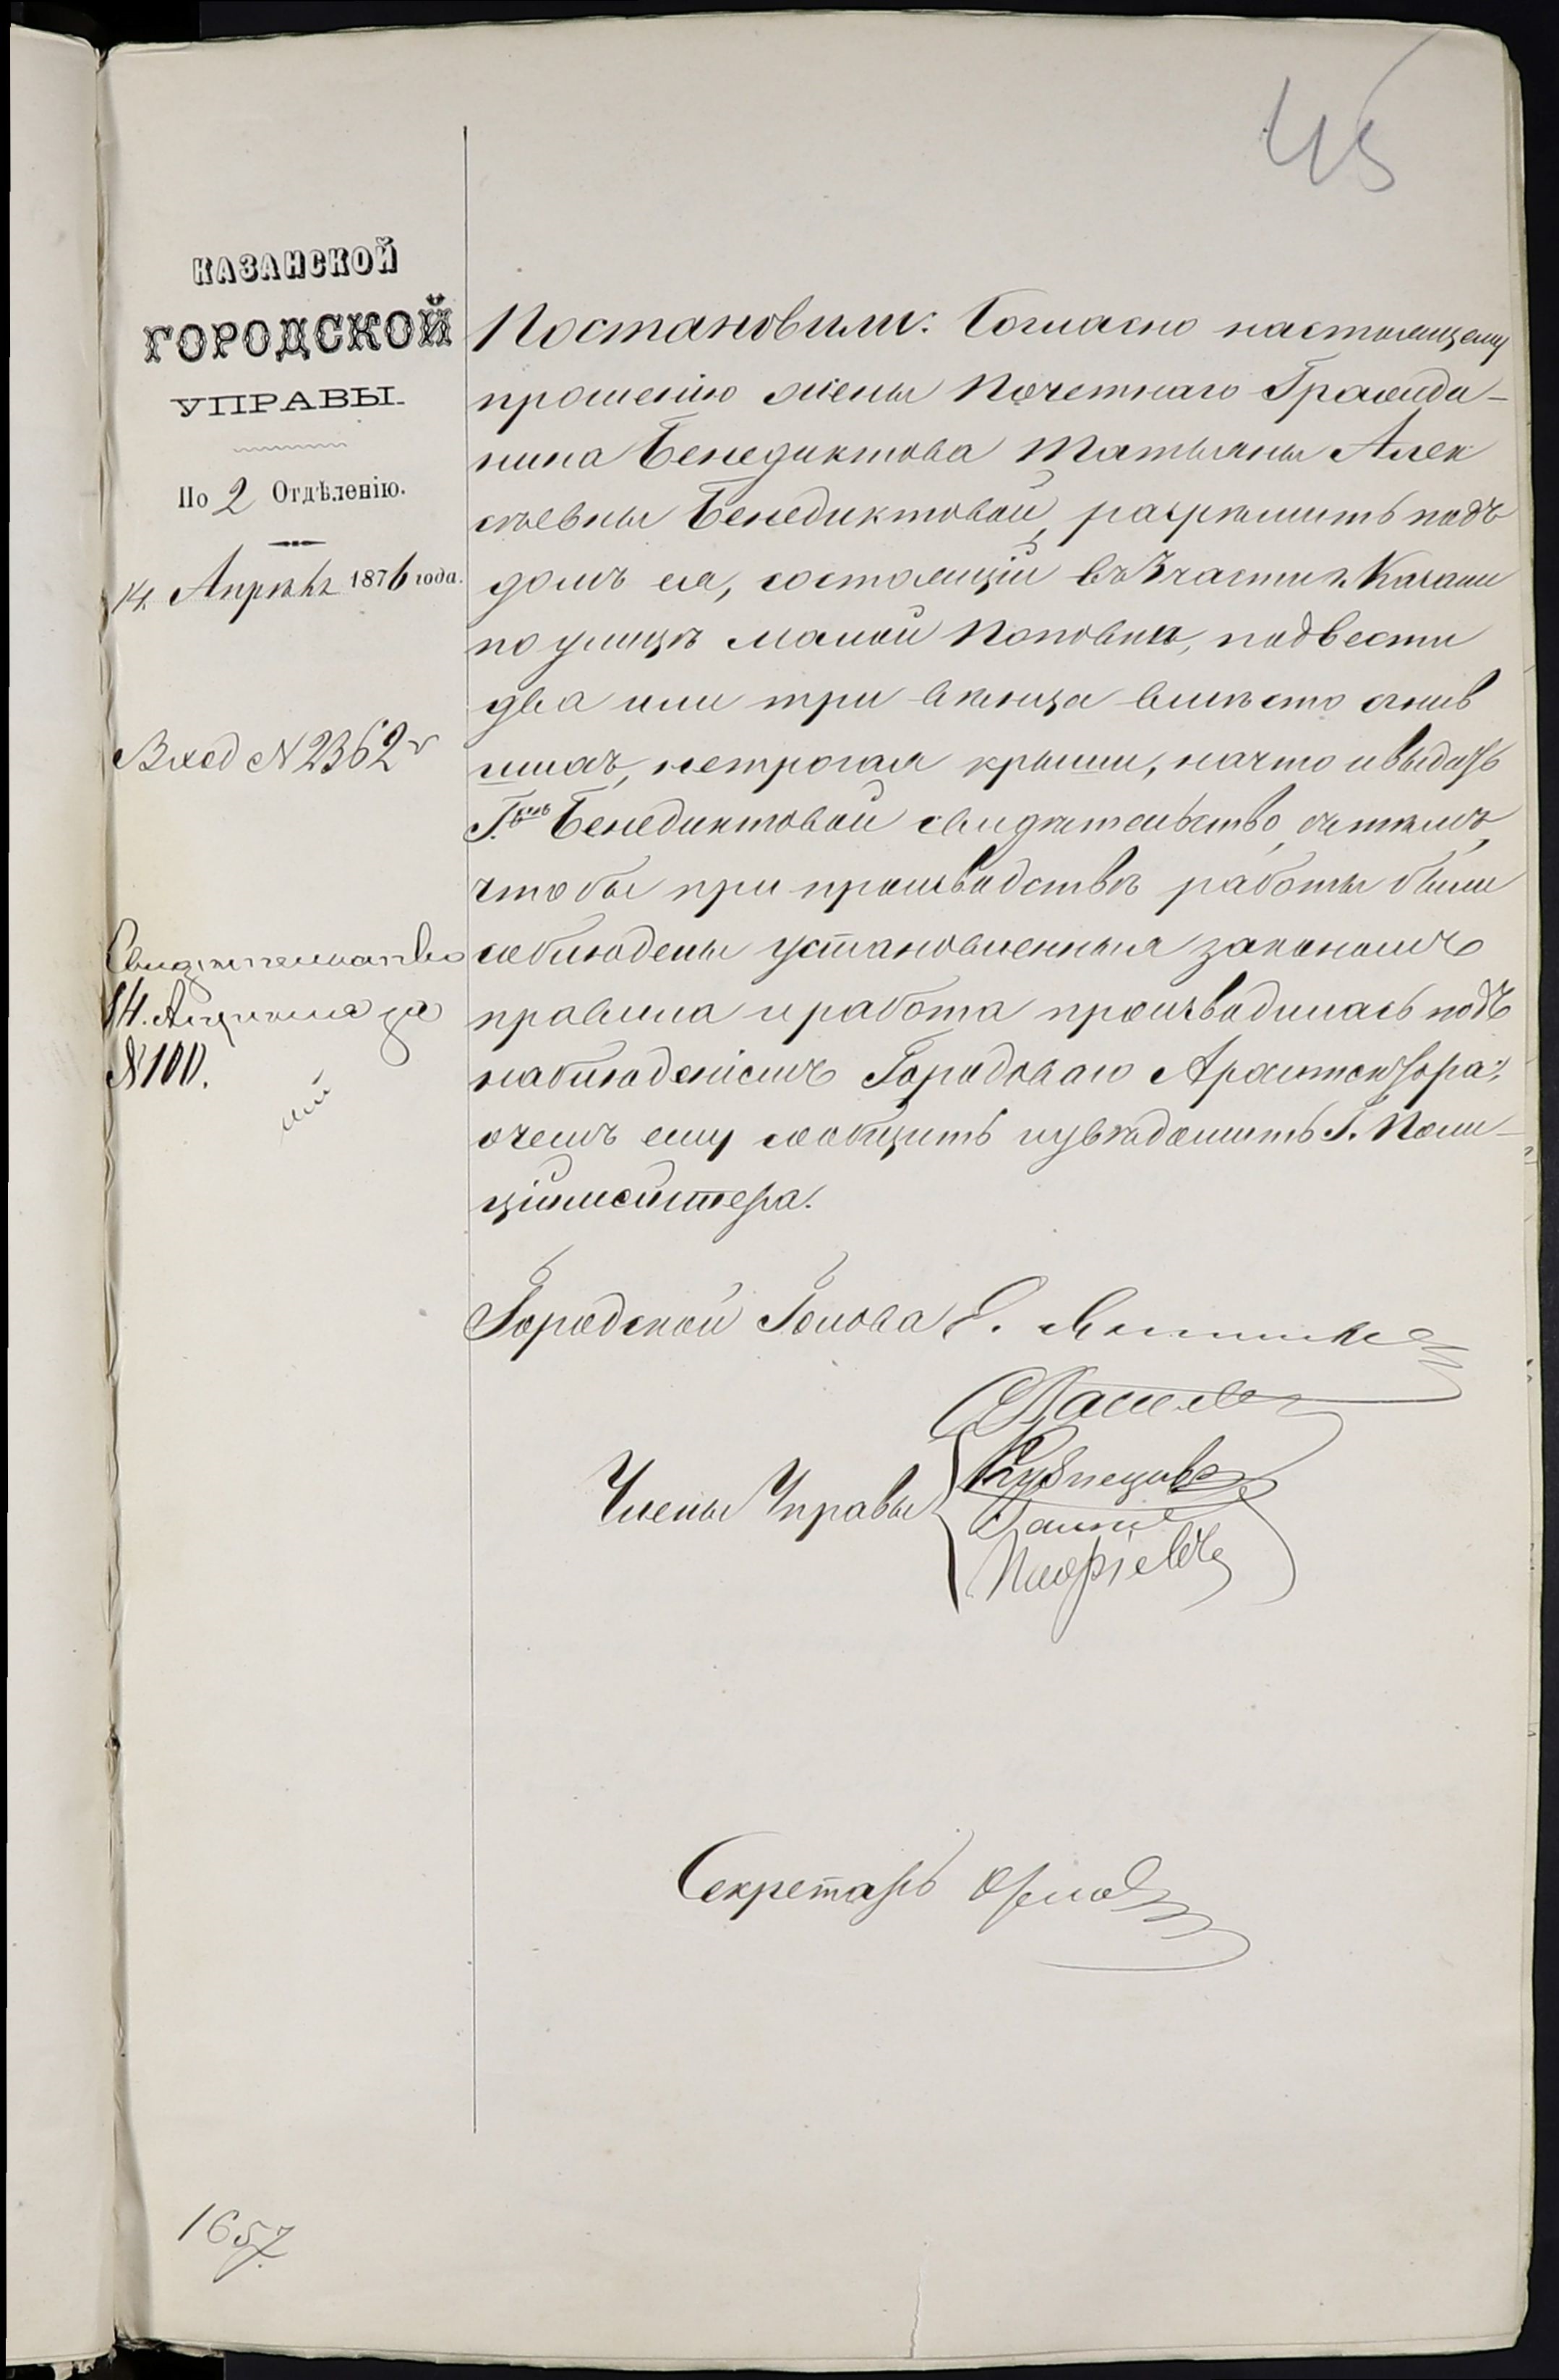 45
КАЗАНСКОЙ
ГОРОДСКОЙ
УПРАВЫ.
По 2 Отдѣленію.
14 Апрѣля 1876 года.
Вход № 2362
Свидѣтельство
14. Апрѣля за
№ 100.
Постановили: Согласно настоящему
прошенію жены Почетнаго Гражда-
нина Бенедиктова Татьяны Алек
сѣевны Бенедиктовой, разрѣшить подъ
домъ ея, состоящій въ 3 части г. Казани
по улицѣ малой Поповкѣ, подвести
два или три вѣнца вмѣсто сгнив
шихъ, нетрогая крыши, на что и выдать
Г. Бенедиктовой свидѣтельство, съ тѣмъ,
чтобы при производствѣ работы были
соблюдены установленныя закономъ
правила и работа производилась подъ
наблюденіемъ Городоваго Архитектора;
о чемъ ему сообщить и увѣдомить Г. Поли-
ціймейстера.
Городской Голова Е.
Члены Управы
Кузнецовъ
Секретарь Орлов
1657